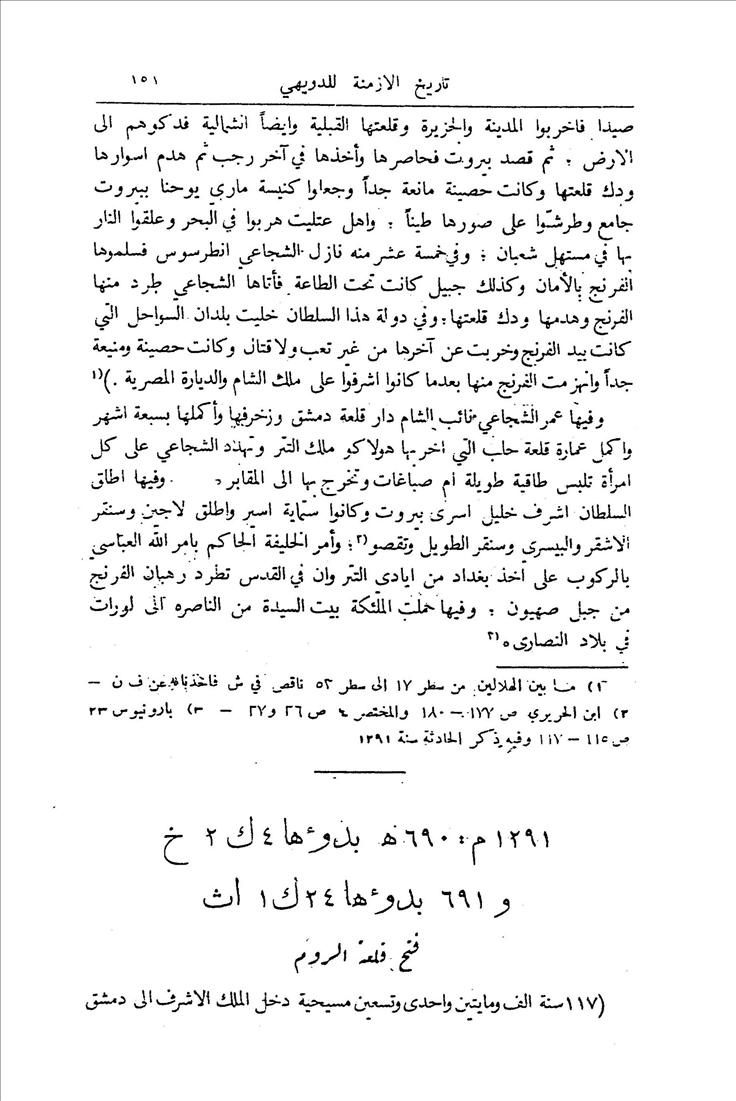 تاريخ الازمنة للدويهي ١٥١
صيدا فاخربوا المدينة والجزيرة وقلعتها القبلية وايضاً الشمالية فدكوهم الى
الارض ؛ ثم قصد بيروت فحاصرها وأخذها في آخر رجب ثم هدم اسوارها
ودك قلعتها وكانت حصينة مانعة جداً وجعلوا كنيسة ماري يوحنا ببيروت
جامع وطرشوا على صورها طيناً ؛ واهل عتليت هربوا في البحر وعلقوا النار
بها في مستهل شعبان ؛ وفي خمسة عشر منه نازل الشجاعي انطرسوس فسلموها
الفرنج بالأمان وكذلك جبيل كانت تحت الطاعة فأتاها الشجاعي طرد منها
الفرنج وهدمها ودك قلعتها؛ وفي دولة هذا السلطان خليت بلدان السواحل التي
كانت بيد الفرنج وخربت عن آخرها من غير تعب ولا قتال وكانت حصينة ومنيعة
جداً وانهزمت الفرنج منها بعدما كانوا اشرفوا على ملك الشام والديارة المصرية .)(١
وفيها عمر الشجاعي نائب الشام دار قلعة دمشق وزخرفها وأكملها بسبعة اشهر
واكمل عمارة قلعة حلب التي اخربها هولاكو ملك التتر وتهدد الشجاعي على كل
امرأة تلبس طاقية طويلة ام صباغات وتخرج بها الى المقابر . وفيها اطلق
السلطان اشرف خليل اسرى بيروت وكانوا ستماية اسير واطلق لاجين وسنقر
الاشقر والبيسرى وسنقر الطويل وتقصو(٢؛ وأمر الخليفة الحاكم بامر الله العباسي
بالركوب على اخذ بغداد من ايادى التتر وان في القدس تطرد رهبان الفرنج
من جبل صهيون ؛ وفيها حملت الملئكة بيت السيدة من الناصره الى لورات
في بلاد النصارى (٣
١) ما بين الهلالين من سطر ١٧ الى سطر ٥٢ ناقص في ش فاخذناه عن ف ن –
٢) ابن الحريري ص ١٧٧ – ١٨٠ والمختصر ٤ ص ٢٦ و ٢٧ – ٣) بارونيوس ٢٣
ص ١١٥ – ١١٧ وفيه ذكر الحادثة سنة ١٢٩١
١٢٩١ م : ٦٩٠ ه بدوءها ٤ ك ٢ خ
و ٦٩١ بدوءها ٢٤ ك ١ اث
فتح قلعة الروم
(١١٧ سنة الف ومايتين واحدى وتسعين مسيحية دخل الملك الاشرف الى دمشق